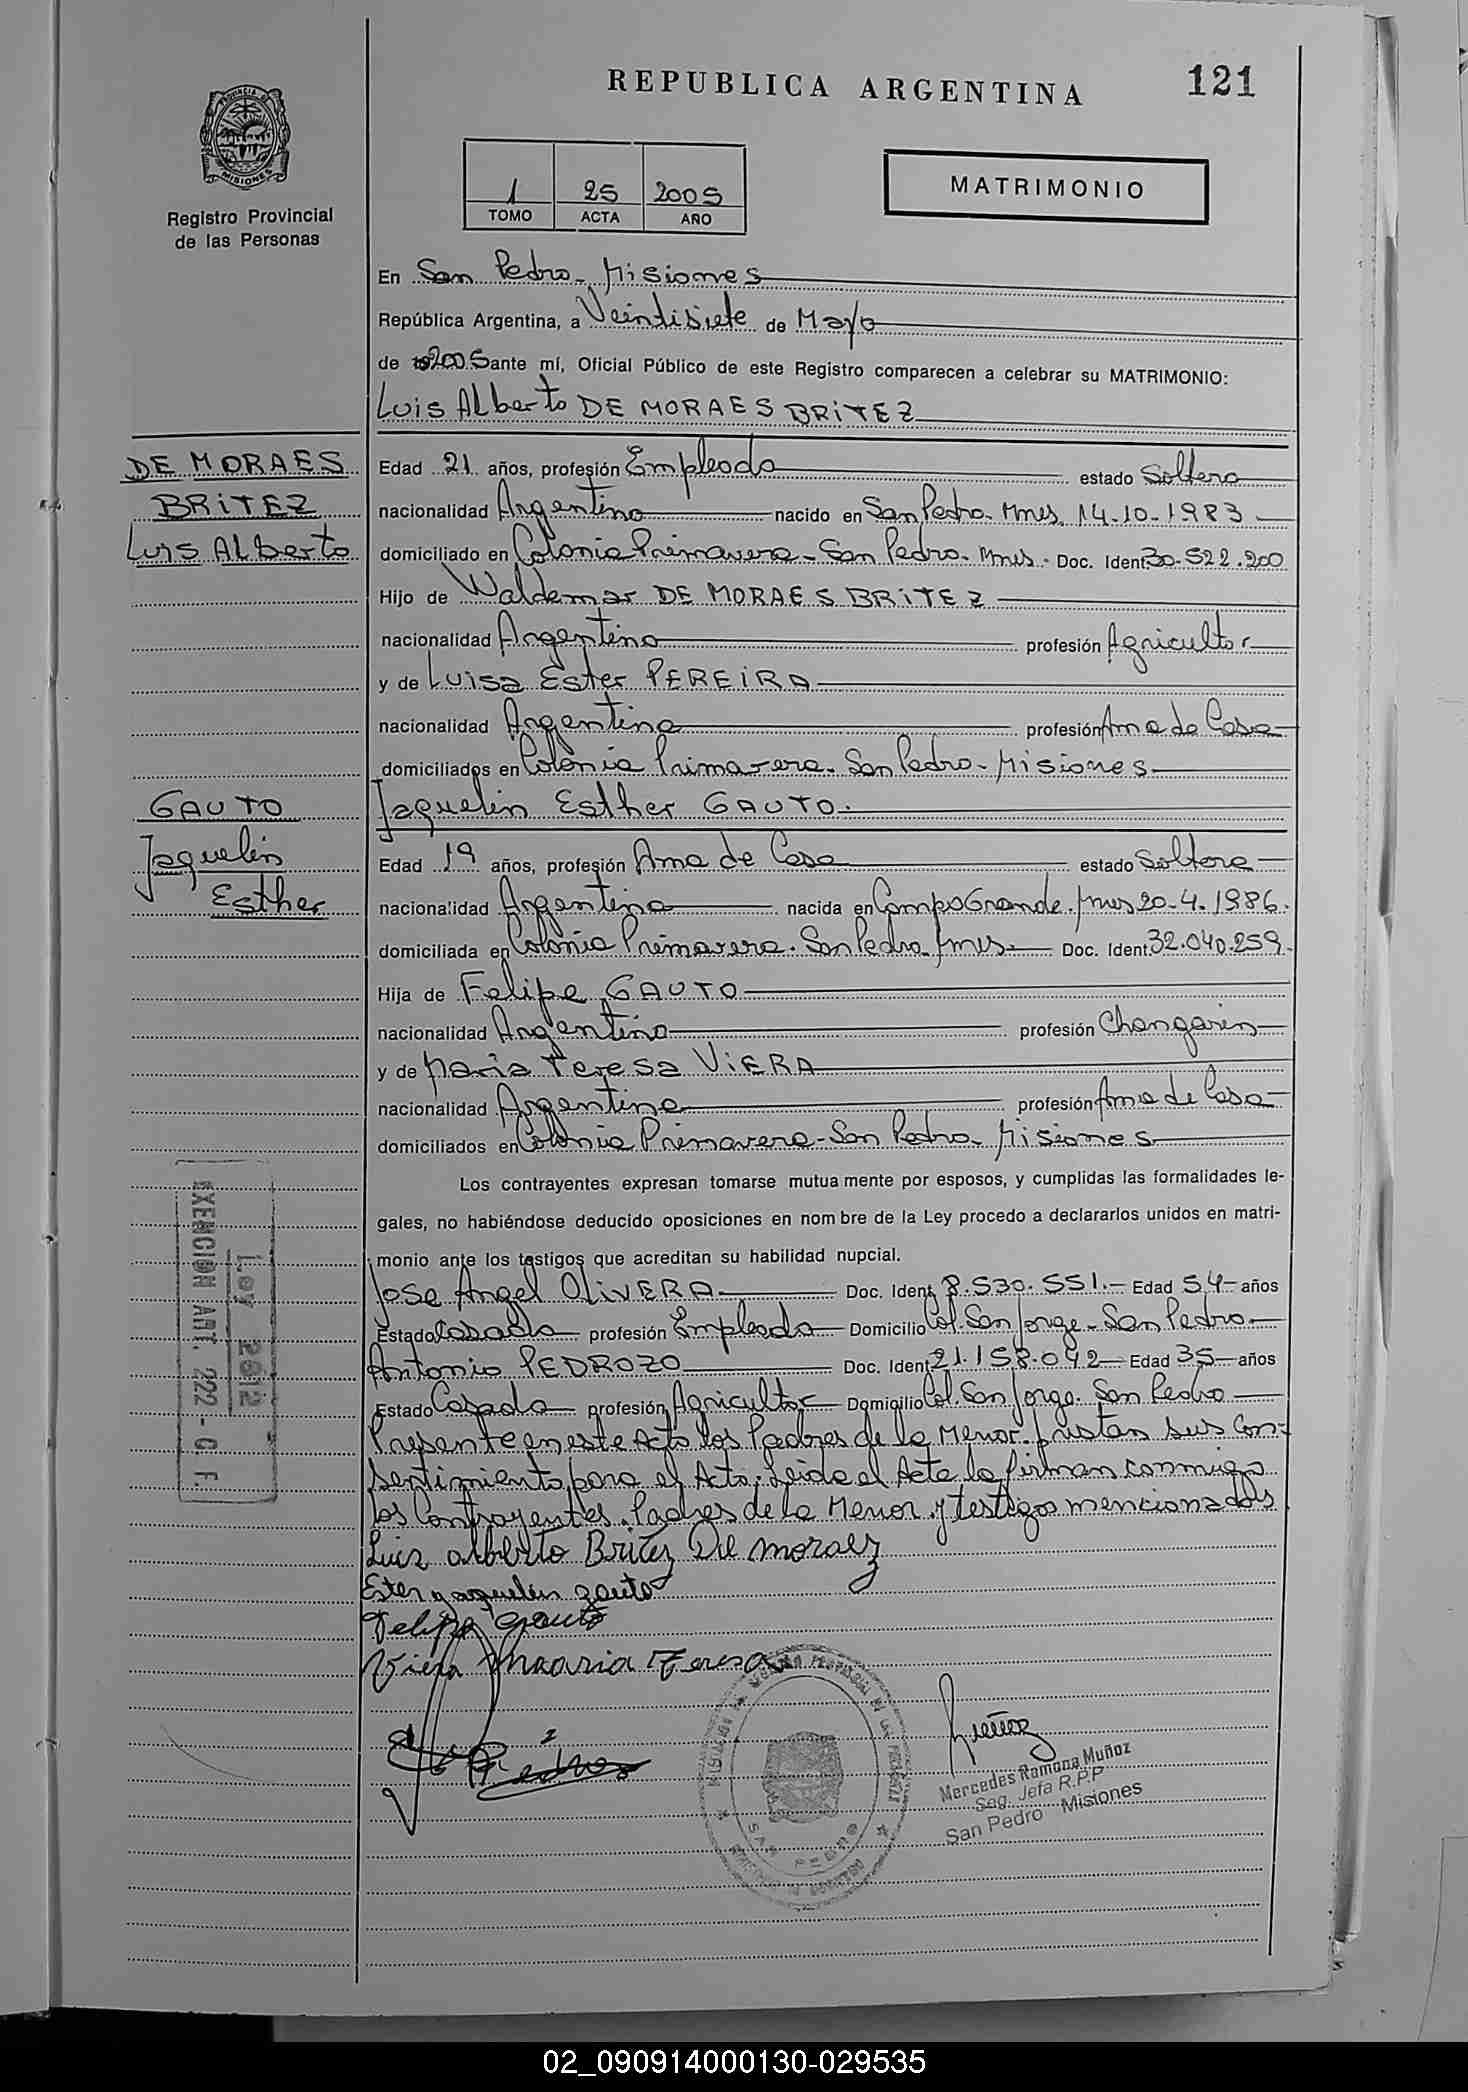 REPUBLICA ARGENTINA
121
PROVINCIA DE
MISIONES
Registro Provincial
de las Personas
1 25 2005
TOMO ACTA AÑO
MATRIMONIO
En San Pedro - Misiones
República Argentina, a Veintisiete de Mayo
de 2005 ante mí, Oficial Público de este Registro comparecen a celebrar su MATRIMONIO:
Luis Alberto DE MORAES BRITEZ
DE MORAES
BRITEZ
Luis Alberto
Edad 21 años, profesión Empleado estado Soltero
nacionalidad Argentino nacido en San Pedro - Mnes. 14-10-1983
domiciliado en Colonia Primavera - San Pedro - Mnes. Doc. Ident 30.522.200
Hijo de Waldemar DE MORAES BRITEZ
nacionalidad Argentino profesión Agricultor
y de Luisa Ester PEREIRA
nacionalidad Argentina profesión Ama de Casa
domiciliados en Colonia Primavera - San Pedro - Misiones
GAUTO
Jaquelin
Esther
Jaquelin Esther GAUTO.
Edad 19 años, profesión Ama de Casa estado Soltera
nacionalidad Argentina nacida en Campo Grande - Mnes 20-4-1986.
domiciliada en Colonia Primavera - San Pedro - Mnes. Doc. Ident. 32.040.259.
Hija de Felipe GAUTO
nacionalidad Argentino profesión Changarin
y de Maria Teresa VIERA
nacionalidad Argentina profesión Ama de Casa
domiciliados en Colonia Primavera - San Pedro - Misiones
Los contrayentes expresan tomarse mutua mente por esposos, y cumplidas las formalidades le-
gales, no habiéndose deducido oposiciones en nom bre de la Ley procedo a declararlos unidos en matri-
monio ante los testigos que acreditan su habilidad nupcial.
Ley 2612
EXENCION ART. 222 - C F.
Jose Angel OLIVERA Doc. Ident. 8.530.551.- Edad 54 años
Estado Casado profesión Empleado Domicilio Col. San Jorge - San Pedro
Antonio PEDROZO Doc. Ident 21.158.042 Edad 35 años
Estado Casado profesión Agricultor Domicilio Col. San Jorge - San Pedro
Presente en este Acto los Padres de la Menor. pristan sus con-
sentimiento para el Acto. Leida el Acta la firman conmigo
los Contrayentes. Padres de la Menor. y testigos mencionados
Luis alberto Britez De moraez
Ester yaquelin gauto
Felipe gauto
Viera Maria Teresa
Pedroz
SAN PEDRO
Muñoz
Mercedes Ramona Muñoz
Seg. Jefa R.P.P
San Pedro Misiones
02_090914000130-029535